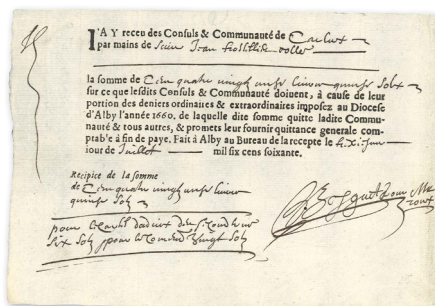 I'AY receu des Consuls & Communauté de
par mains de Jean
la somme de Cent quatre vingt unse livres quinse solz
sur ce que lesdits Consuls & Communauté doiuent, à cause de leur
portion des deniers ordinaires & extraordinaires imposez au Diocese
d'Alby l'année 1660. de laquelle dite somme quitte ladite Commu-
nauté & tous autres, & promets leur fournir quittance generale com-
prab'e à fin de paye. Fait à Alby au Bureau de la recepte le
iour de Juillet mil six cens soixante.
Recipice de la somme
de Cent quatre vingt unse livres
quinse solz
pour
six solz pour vingt solz
pour